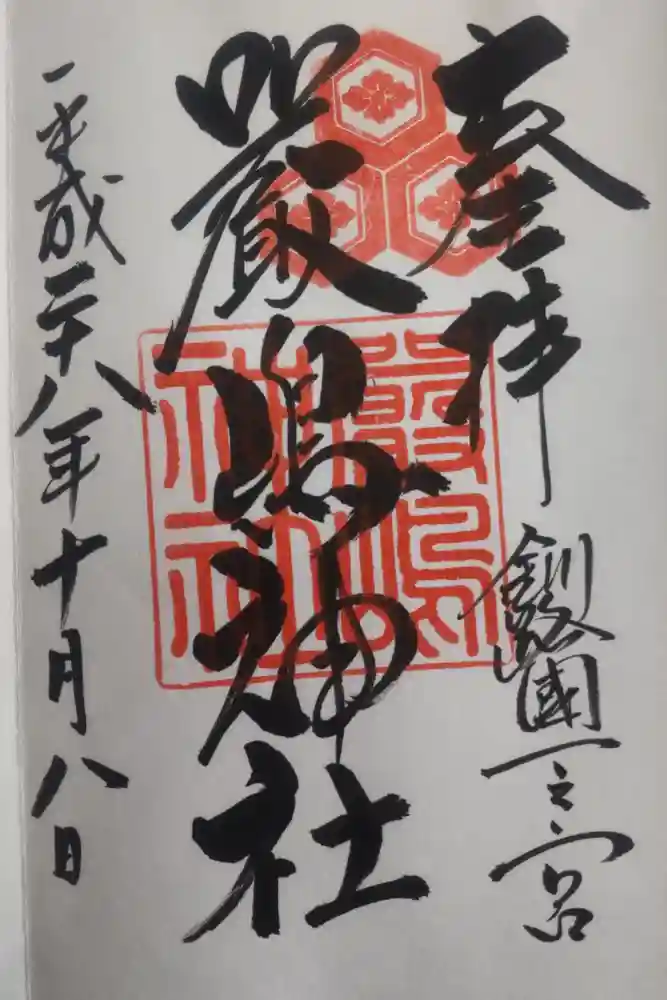 參拝
國一之宮
嚴島神社
嚴嶋
神社
平成二十八年十月八日